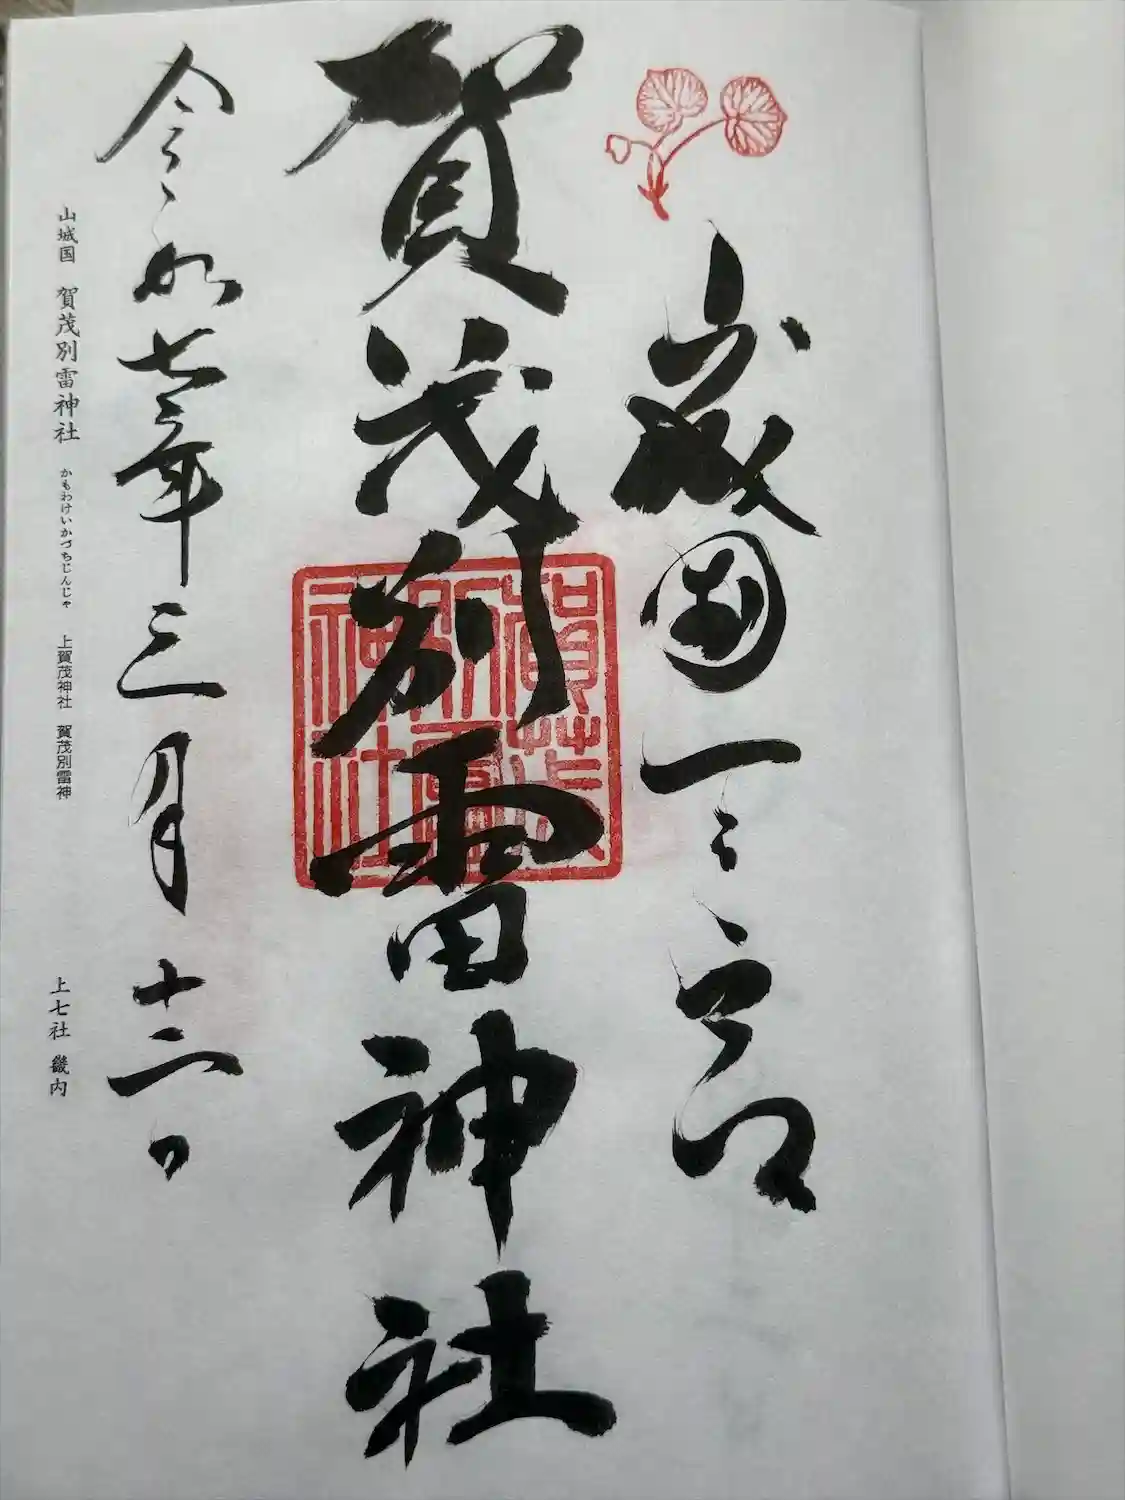 山城国一之宮
賀茂別雷神社
賀茂別雷神社
令和七年三月十二日
山城国 賀茂別雷神社 かもわけいかづちじんじゃ 上賀茂神社 賀茂別雷神 上七社 畿内